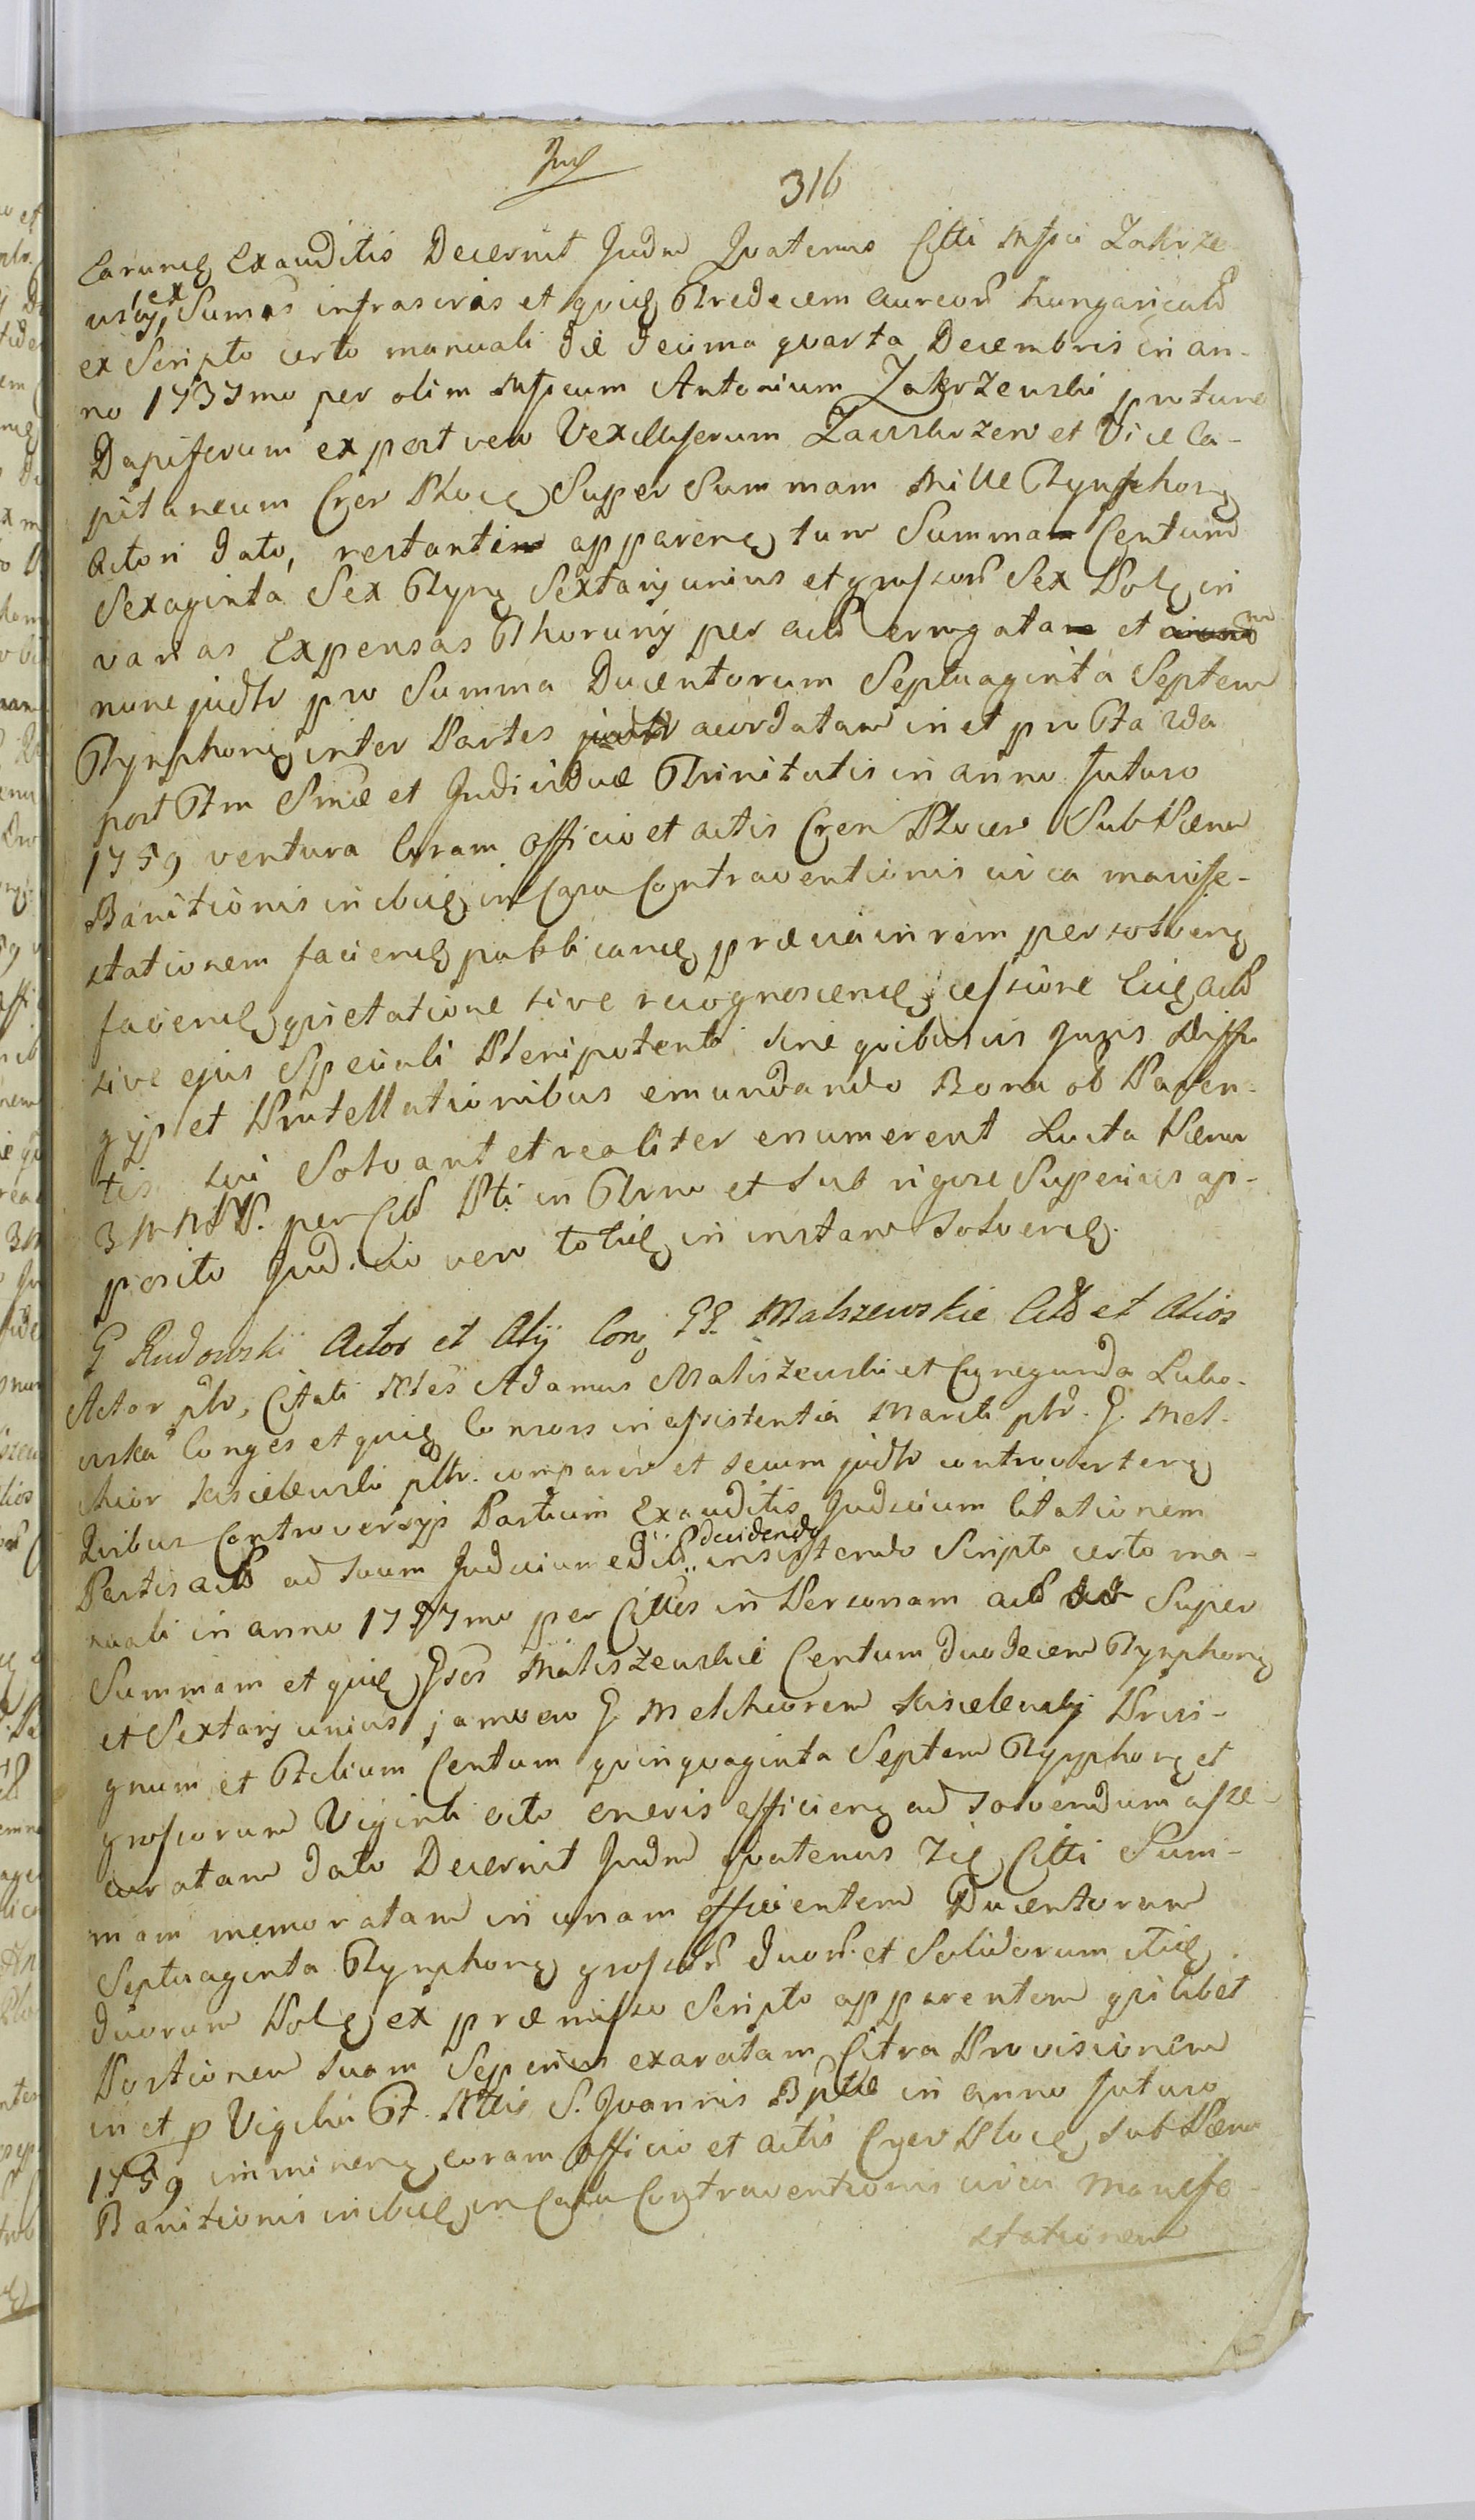 Jud
316
Earumq Exauditis Decernit Judm Quatenus Citti Mfici Zakrze
wscy, ex Summis infrascris et quidq Tredecem aureorm hungaricalm
ex Scripto certo manuali die decima quarta Decembris in an-
no 1737mo per olim Mficum Antonium Zakrzewski protunc
Dapiferum ex post vero Vexilliferum Zawskrzen et Vice Ca-
pitaneum Cren Plocq Super Summam Mille Tynphorq
Actori dato, restantem apparenq tum Summam Centum
Sexaginta Sex Tynq Sextarij unius et grossorm Sex Polq in
varias Expensas Thorunij per actm errogatam et
nunc judtr pro Summa Ducentorum Septuaginta Septem
Tynphorq inter Partes judtr acordatam in et pro Fta 2da
post Ftm Smae et Individuae Trinitatis in anno futuro
1759 ventura Coram Officio et actis Cren Plocen Sub Paena
Banitionis in ibidq in Casu Contraventionis circa manife-
stationem faciendq publicandq praevia in rem persolvenq
faciendq quietatione sive recognoscendq cessione Eidq actm
sive ejus Speciali Plenipotenti sine quibusvis Juris Diffu
gijs et Protellationibus emundando Bona ob Paren-
tis sui Solvant et realiter enumerent Lucta Paena
3 M M P. per Citt Pti in Trno et sub rigore Superius ap-
posito Jud. cio vero totidq in instanr solvendq.
G Rudowski Actor et Alij Conq GG. Maliszewskie Citt et Alios
Actor ptr, Citati Mles Adamus Maliszewski et Cunegunda Lubo-
wska Conges et quidq Consors in assistentia Mariti ptr. G. Mel-
chior Kisielewski pltr. comparen et secum judtr controvertenq
Quibus Controversijs Partium Exauditis Judicium Citationem
Partis actm ad suum Judicium edit. decidendo insistendo Scripto certo ma-
nuali in anno 1757mo per Cittos in Personam actm Super
Summam et quidq Gsos Maliszewskie Centum duodecem Tynphorq
et Sextarij unius jamvero G. Melchiorem Kisielewskij Privi-
gnum et Filium Centum quinquaginta Septem Tynphorq et
grossorum Viginti octo oneris efficienq ad solvendum asse-
curatam dato Decernit Judm quatenus Iidq Citti Sum-
mam memoratam in unam efficientem Ducentorum
Septuaginta Tynphorq grossorm duorm et Solidorum itidq
duorum Polq ex praemisso Scripto apparentem quilibet
Portionem suam Superius exaratam Citra Provisionem
in et p Vigilia Ft. Nttis S. Joannis Bpttae in anno futuro
1759 imminenq coram Officio et actis Cren Plocq sub Paena
Banitionis in ibidq in Casu Contraventionis circa Manife-
stationem